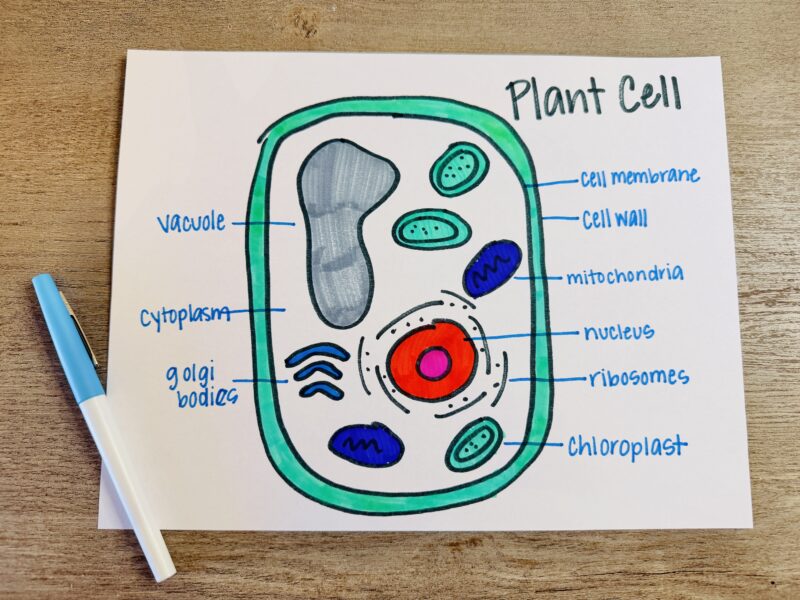 Plant Cell
cell membrane
cell wall
vacuole
mitochondria
cytoplasm
nucleus
golgi
bodies
ribosomes
chloroplast